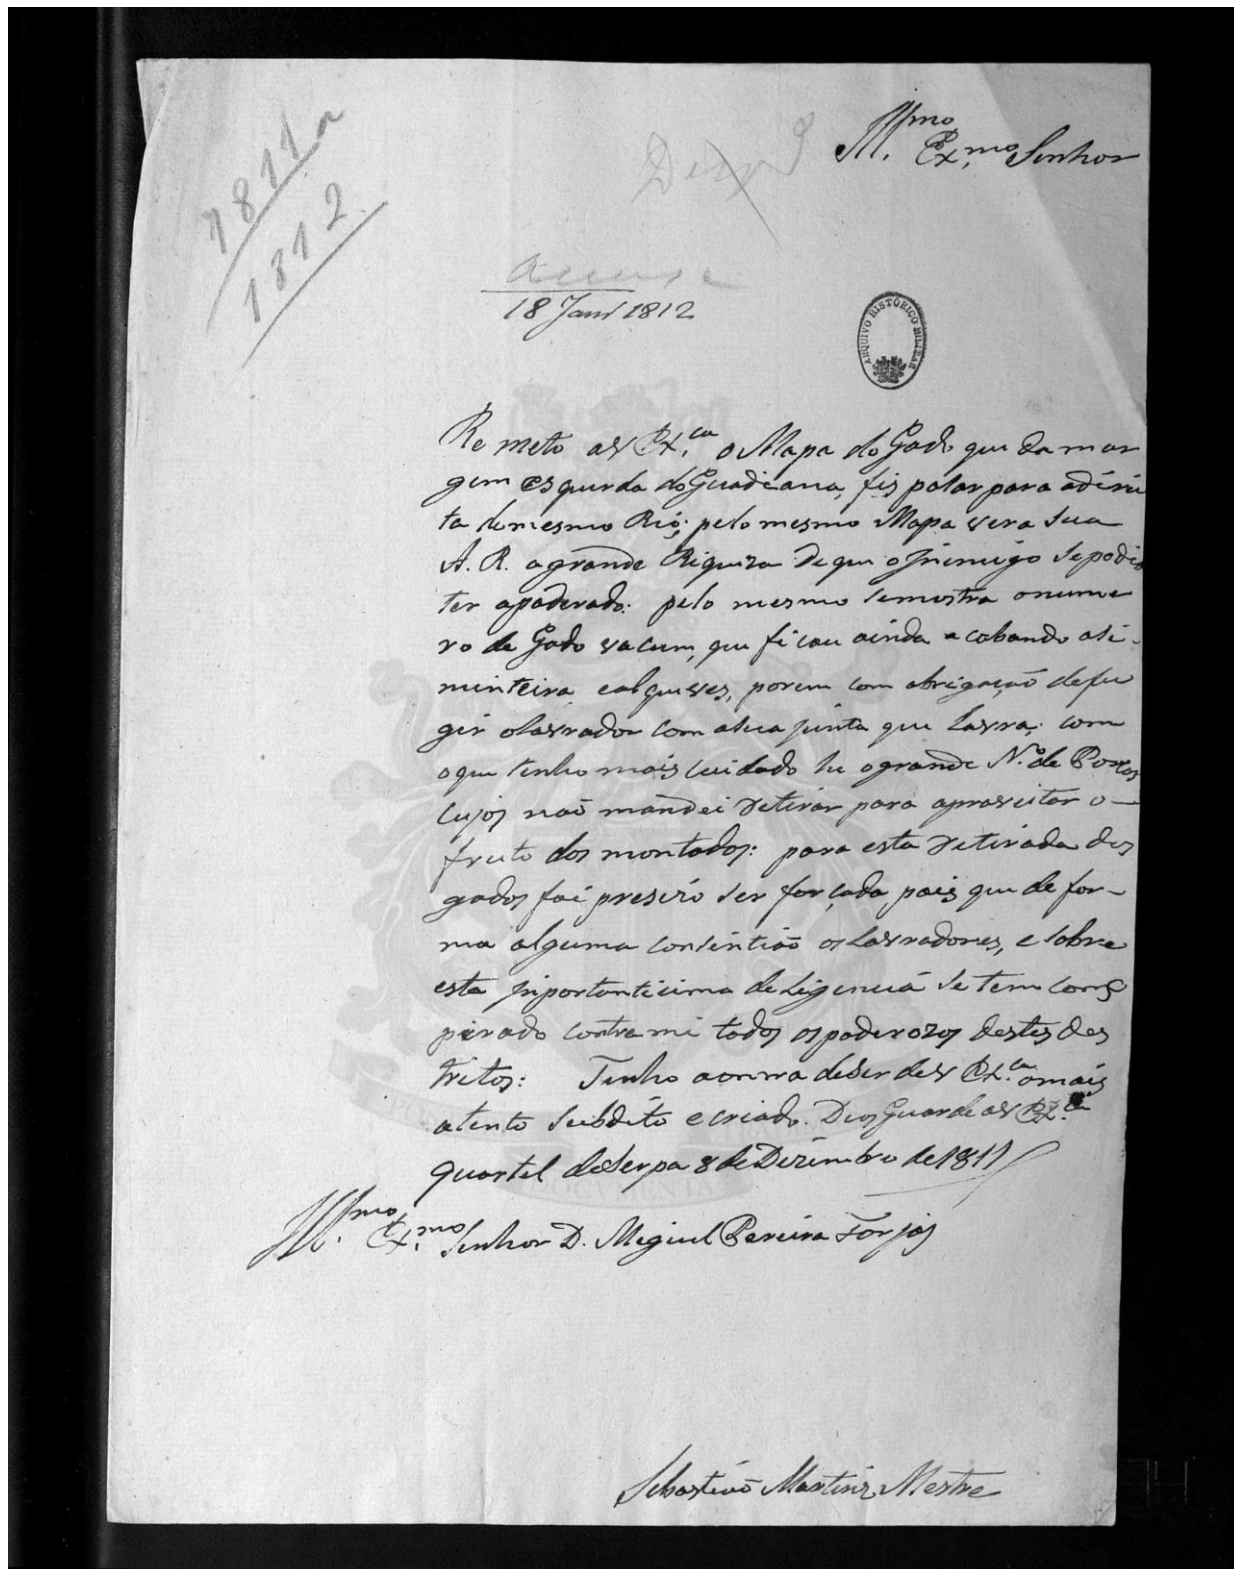 1811 a
1812
Ill.mo Ex.mo Senhor
18 Janr 1812
ARQUIVO HISTÓRICO MILITAR
Re meto a V Ex.ca o Mapa do Gado que da mar
gem esquerda do Guadiana, fis pasar para a dirêi
ta do mesmo Rio; pelo mesmo Mapa vera Sua
A. R. a grande Riqueza de que o Inemigo se podia
ter apoderado: pelo mesmo se mostra o nume
ro de Gado vacum, que ficou ainda acobando a si-
minteira e alqueves, porem com obrigação de fu
gir o lavrador com a sua junta que lavra; com
o que tenho mais cuidado he o grande N.o de Porcos
cujos não mandei retirar para aproveitar o
fruto dos montados: para esta retirada dos
gados foi presizo ser forçada, pois que de for-
ma alguma consintião os lavradores, e sobre
esta inportanticima deligencia se tem cons
pirado contra mi todos os poderozos destes des
tritos: Tenho a onrra de Ser de V Ex.ca o mais
atento Subdito e criado. Deos Guarde a V Ex.ca
Quartel de Serpa 8 de Dezembro de 1811
Ill.mo Ex.mo Senhor D. Miguel Pereira Forjas
DOCVMENTA
Sebastião Martins Mestre